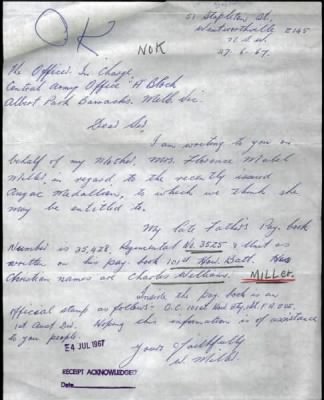 OK
NOK
51 Stapleton St.
Wentworthville 2145
N.S.W.
27.6.67.
The Officer In Charge,
Central Army Office "A" Block
Albert Park Barracks. Melb Vic.
Dear Sir,
I am writing to you on
behalf of my Mother. Mrs. Florence Mabel
Miller, in regard to the recently issued
Anzac Medallion, to which we think she
may be entitled to.
My late Father's Pay book
Number is 35,428, Regimental No 3525 & that as
written on his pay book 101st How. Batt. His
Christian names are Charles William. MILLER.
Inside the pay book is an
official stamp as follows:- O.C. 101st
1st Aust Div. Hoping this information is of assistance
to you people.
Yours Faithfully
W. Miller.
E4 JUL 1967
RECEIPT ACKNOWLEDGED
Date